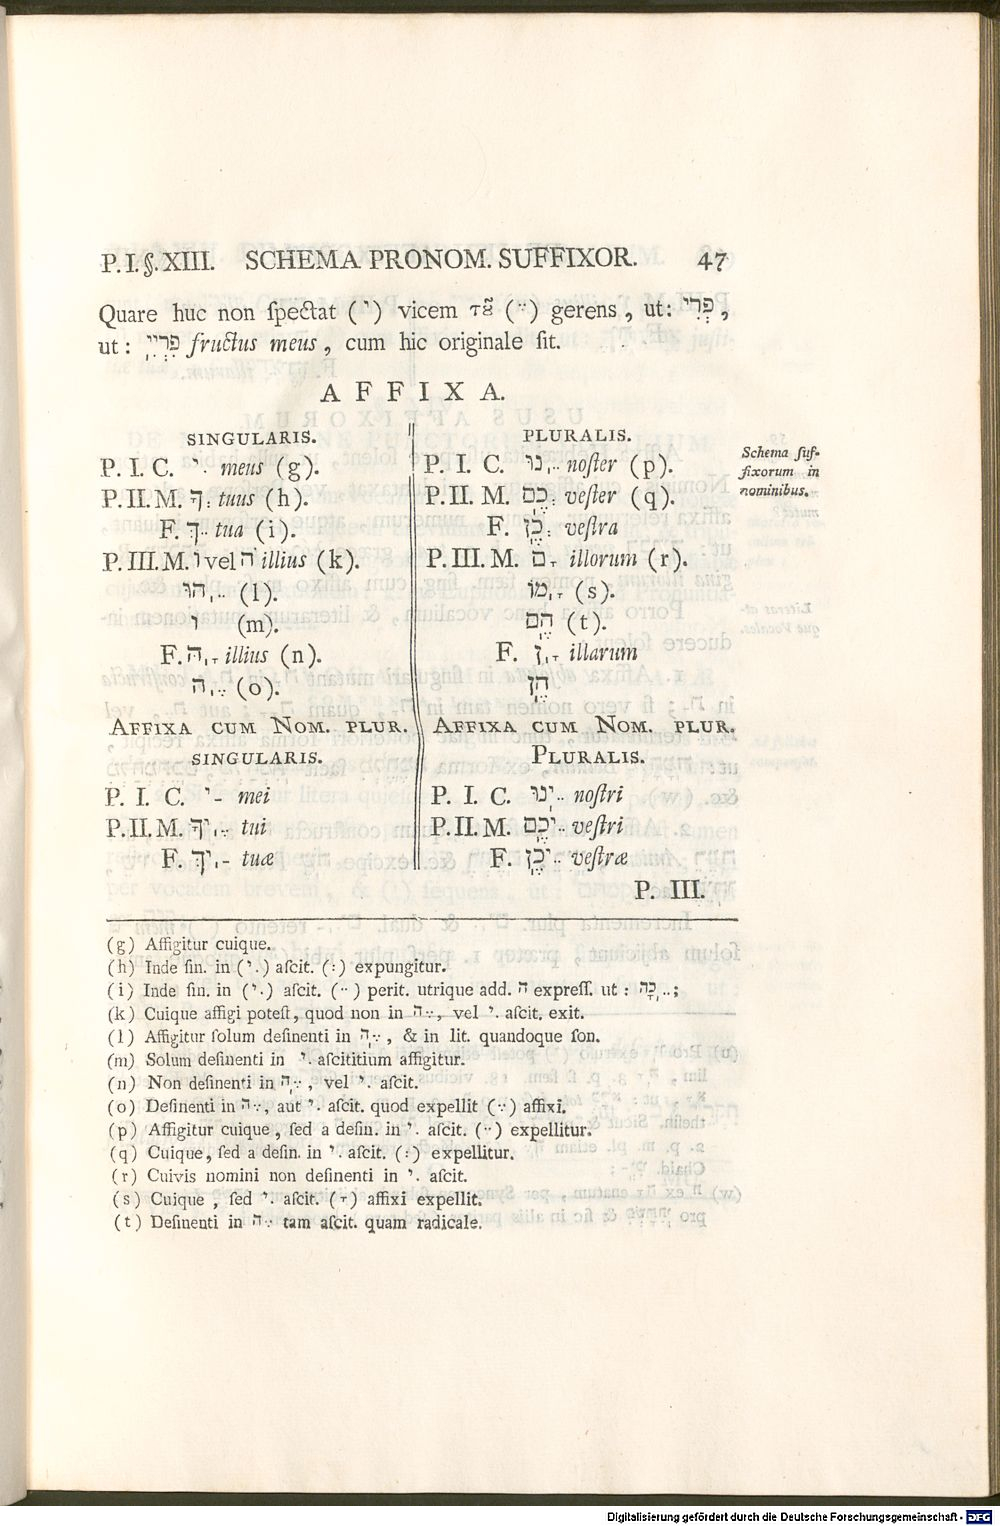 P. I. §. XIII. SCHEMA PRONOM. SUFFIXOR. 47
Quare huc non ſpectat (י) vicem τȣ͂ (..) gerens, ut: פְּרִי,
ut: פִּרְיִי fructus meus, cum hic originale ſit.
AFFIXA.
SINGULARIS.
P. I. C. י. meus (g).
P. II. M. ךָ: tuus (h).
F. ךְ.. tua (i).
P. III. M. ו vel ה illius (k).
הוּ.. (l).
ו (m).
F. הָ, illius (n).
ה, (o).
AFFIXA CUM NOM. PLUR.
SINGULARIS.
P. I. C. י- mei
P. II. M. יךָ, tui
F. יִךְ,- tuæ
PLURALIS.
P. I. C. נוּ,.. noſter (p).
P. II. M. כֶם: veſter (q).
F. כֶן: veſtra
P. III. M. ם illorum (r).
מוֹ, (s).
הֶם (t).
F. ן, illarum
הֶן
AFFIXA CUM NOM. PLUR.
PLURALIS.
P. I. C. ינוּ.. noſtri
P. II. M. יכֶם.. veſtri
F. יכֶן.. veſtræ
P. III.
Schema ſuf-
fixorum in
nominibus.
(g) Affigitur cuique.
(h) Inde fin. in (י.) aſcit. (:) expungitur.
(i) Inde fin. in (י.) aſcit. (..) perit. utrique add. ה expreſſ. ut: כָה,..;
(k) Cuique affigi poteſt, quod non in ה, vel י. aſcit. exit.
(l) Affigitur ſolum deſinenti in ה, & in lit. quandoque ſon.
(m) Solum deſinenti in י. aſcititium affigitur.
(n) Non deſinenti in ה, vel י. aſcit.
(o) Deſinenti in ה, aut י. aſcit. quod expellit (∵) affixi.
(p) Affigitur cuique, ſed a deſin. in י. aſcit. (..) expellitur.
(q) Cuique, ſed a deſin. in י. aſcit. (:) expellitur.
(r) Cuivis nomini non deſinenti in י. aſcit.
(s) Cuique, ſed י. aſcit. (ָ) affixi expellit.
(t) Deſinenti in ה tam aſcit. quam radicale.
Digitalisierung gefördert durch die Deutsche Forschungsgemeinschaft - DFG